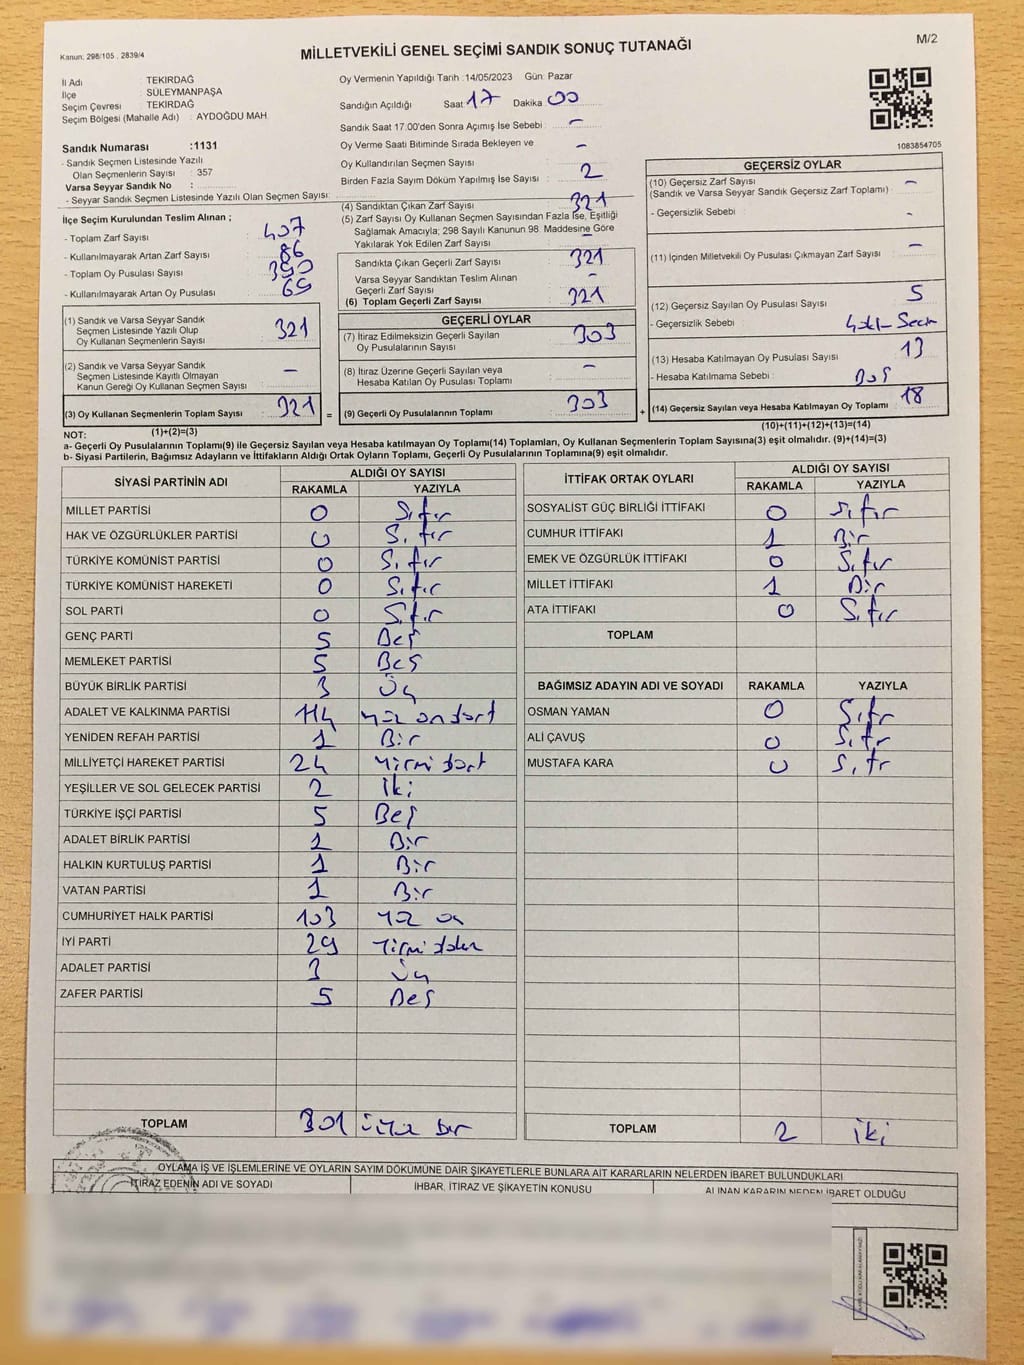 Kanun: 298/105 , 2839/4
MİLLETVEKİLİ GENEL SEÇİMİ SANDIK SONUÇ TUTANAĞI
M/2
İl Adı : TEKIRDAĞ
İlçe : SÜLEYMANPAŞA
Seçim Çevresi : TEKIRDAĞ
Seçim Bölgesi (Mahalle Adı) : AYDOĞDU MAH.
Oy Vermenin Yapıldığı Tarih :14/05/2023 Gün: Pazar
Sandığın Açıldığı Saat 17 Dakika 00
Sandık Saat 17.00'den Sonra Açımış İse Sebebi : -
Oy Verme Saati Bitiminde Sırada Bekleyen ve
Oy Kullandırılan Seçmen Sayısı -
Birden Fazla Sayım Döküm Yapılmış İse Sayısı : 2
1083854705
Sandık Numarası :1131
- Sandık Seçmen Listesinde Yazılı
Olan Seçmenlerin Sayısı : 357
Varsa Seyyar Sandık No :
- Seyyar Sandık Seçmen Listesinde Yazılı Olan Seçmen Sayısı:
İlçe Seçim Kurulundan Teslim Alınan ;
- Toplam Zarf Sayısı 407
- Kullanılmayarak Artan Zarf Sayısı 86
- Toplam Oy Pusulası Sayısı
- Kullanılmayarak Artan Oy Pusulası 69
(1) Sandık ve Varsa Seyyar Sandık
Seçmen Listesinde Yazılı Olup
Oy Kullanan Seçmenlerin Sayısı 321
(2) Sandık ve Varsa Seyyar Sandık
Seçmen Listesinde Kayıtlı Olmayan
Kanun Gereği Oy Kullanan Seçmen Sayısı -
(3) Oy Kullanan Seçmenlerin Toplam Sayısı 321 =
(1)+(2)=(3)
(4) Sandıktan Çıkan Zarf Sayısı 321
(5) Zarf Sayısı Oy Kullanan Seçmen Sayısından Fazla İse, Eşitliği
Sağlamak Amacıyla; 298 Sayılı Kanunun 98. Maddesine Göre
Yakılarak Yok Edilen Zarf Sayısı -
Sandıkta Çıkan Geçerli Zarf Sayısı 321
Varsa Seyyar Sandıktan Teslim Alınan
Geçerli Zarf Sayısı -
(6) Toplam Geçerli Zarf Sayısı 321
GEÇERLİ OYLAR
(7) İtiraz Edilmeksizin Geçerli Sayılan
Oy Pusulalarının Sayısı 303
(8) İtiraz Üzerine Geçerli Sayılan veya
Hesaba Katılan Oy Pusulası Toplamı -
(9) Geçerli Oy Pusulalarının Toplamı 303 +
GEÇERSİZ OYLAR
(10) Geçersiz Zarf Sayısı -
(Sandık ve Varsa Seyyar Sandık Geçersiz Zarf Toplamı) :
- Geçersizlik Sebebi : -
(11) İçinden Milletvekili Oy Pusulası Çıkmayan Zarf Sayısı -
(12) Geçersiz Sayılan Oy Pusulası Sayısı 5
- Geçersizlik Sebebi :
(13) Hesaba Katılmayan Oy Pusulası Sayısı 13
- Hesaba Katılmama Sebebi : Boş
(14) Geçersiz Sayılan veya Hesaba Katılmayan Oy Toplamı 18
(10)+(11)+(12)+(13)=(14)
NOT:
a- Geçerli Oy Pusulalarının Toplamı(9) ile Geçersiz Sayılan veya Hesaba katılmayan Oy Toplamı(14) Toplamları, Oy Kullanan Seçmenlerin Toplam Sayısına(3) eşit olmalıdır. (9)+(14)=(3)
b- Siyasi Partilerin, Bağımsız Adayların ve İttifakların Aldığı Ortak Oyların Toplamı, Geçerli Oy Pusulalarının Toplamına(9) eşit olmalıdır.
SİYASİ PARTİNİN ADI
ALDIĞI OY SAYISI
RAKAMLA YAZIYLA
MİLLET PARTİSİ 0 Sıfır
HAK VE ÖZGÜRLÜKLER PARTİSİ 0 Sıfır
TÜRKİYE KOMÜNİST PARTİSİ 0 Sıfır
TÜRKİYE KOMÜNİST HAREKETİ 0 Sıfır
SOL PARTİ 0 Sıfır
GENÇ PARTİ 5 Beş
MEMLEKET PARTİSİ 5 Beş
BÜYÜK BİRLİK PARTİSİ 3 Üç
ADALET VE KALKINMA PARTİSİ 114 Yüz ondört
YENİDEN REFAH PARTİSİ 1 Bir
MİLLİYETÇİ HAREKET PARTİSİ 24 Yirmi dört
YEŞİLLER VE SOL GELECEK PARTİSİ 2 İki
TÜRKİYE İŞÇİ PARTİSİ 5 Beş
ADALET BİRLİK PARTİSİ 1 Bir
HALKIN KURTULUŞ PARTİSİ 1 Bir
VATAN PARTİSİ 1 Bir
CUMHURİYET HALK PARTİSİ 103 Yüz üç
İYİ PARTİ 29 Yirmi dokuz
ADALET PARTİSİ 3 Üç
ZAFER PARTİSİ 5 Beş
TOPLAM 301 üçyüz bir
İTTİFAK ORTAK OYLARI
ALDIĞI OY SAYISI
RAKAMLA YAZIYLA
SOSYALİST GÜÇ BİRLİĞİ İTTİFAKI 0 Sıfır
CUMHUR İTTİFAKI 1 Bir
EMEK VE ÖZGÜRLÜK İTTİFAKI 0 Sıfır
MİLLET İTTİFAKI 1 Bir
ATA İTTİFAKI 0 Sıfır
TOPLAM
BAĞIMSIZ ADAYIN ADI VE SOYADI RAKAMLA YAZIYLA
OSMAN YAMAN 0 Sıfır
ALİ ÇAVUŞ 0 Sıfır
MUSTAFA KARA 0 Sıfır
TOPLAM 2 İki
OYLAMA İŞ VE İŞLEMLERİNE VE OYLARIN SAYIM DÖKÜMÜNE DAİR ŞİKAYETLERLE BUNLARA AİT KARARLARIN NELERDEN İBARET BULUNDUKLARI
İTİRAZ EDENİN ADI VE SOYADI
İHBAR, İTİRAZ VE ŞİKAYETİN KONUSU
ALINAN KARARIN NEDEN İBARET OLDUĞU